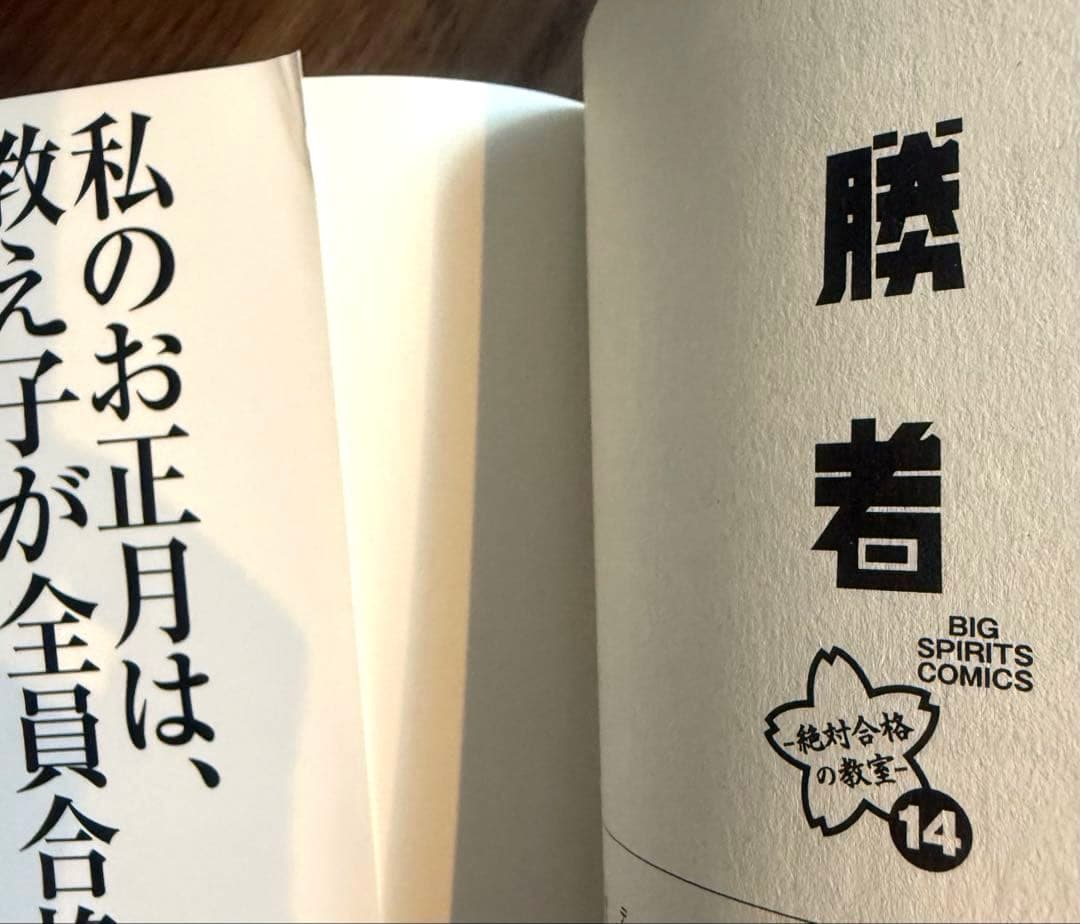 私のお正月は、
教え子が全員合格
勝
者
BIG
SPIRITS
COMICS
-絶対合格
の教室-
14